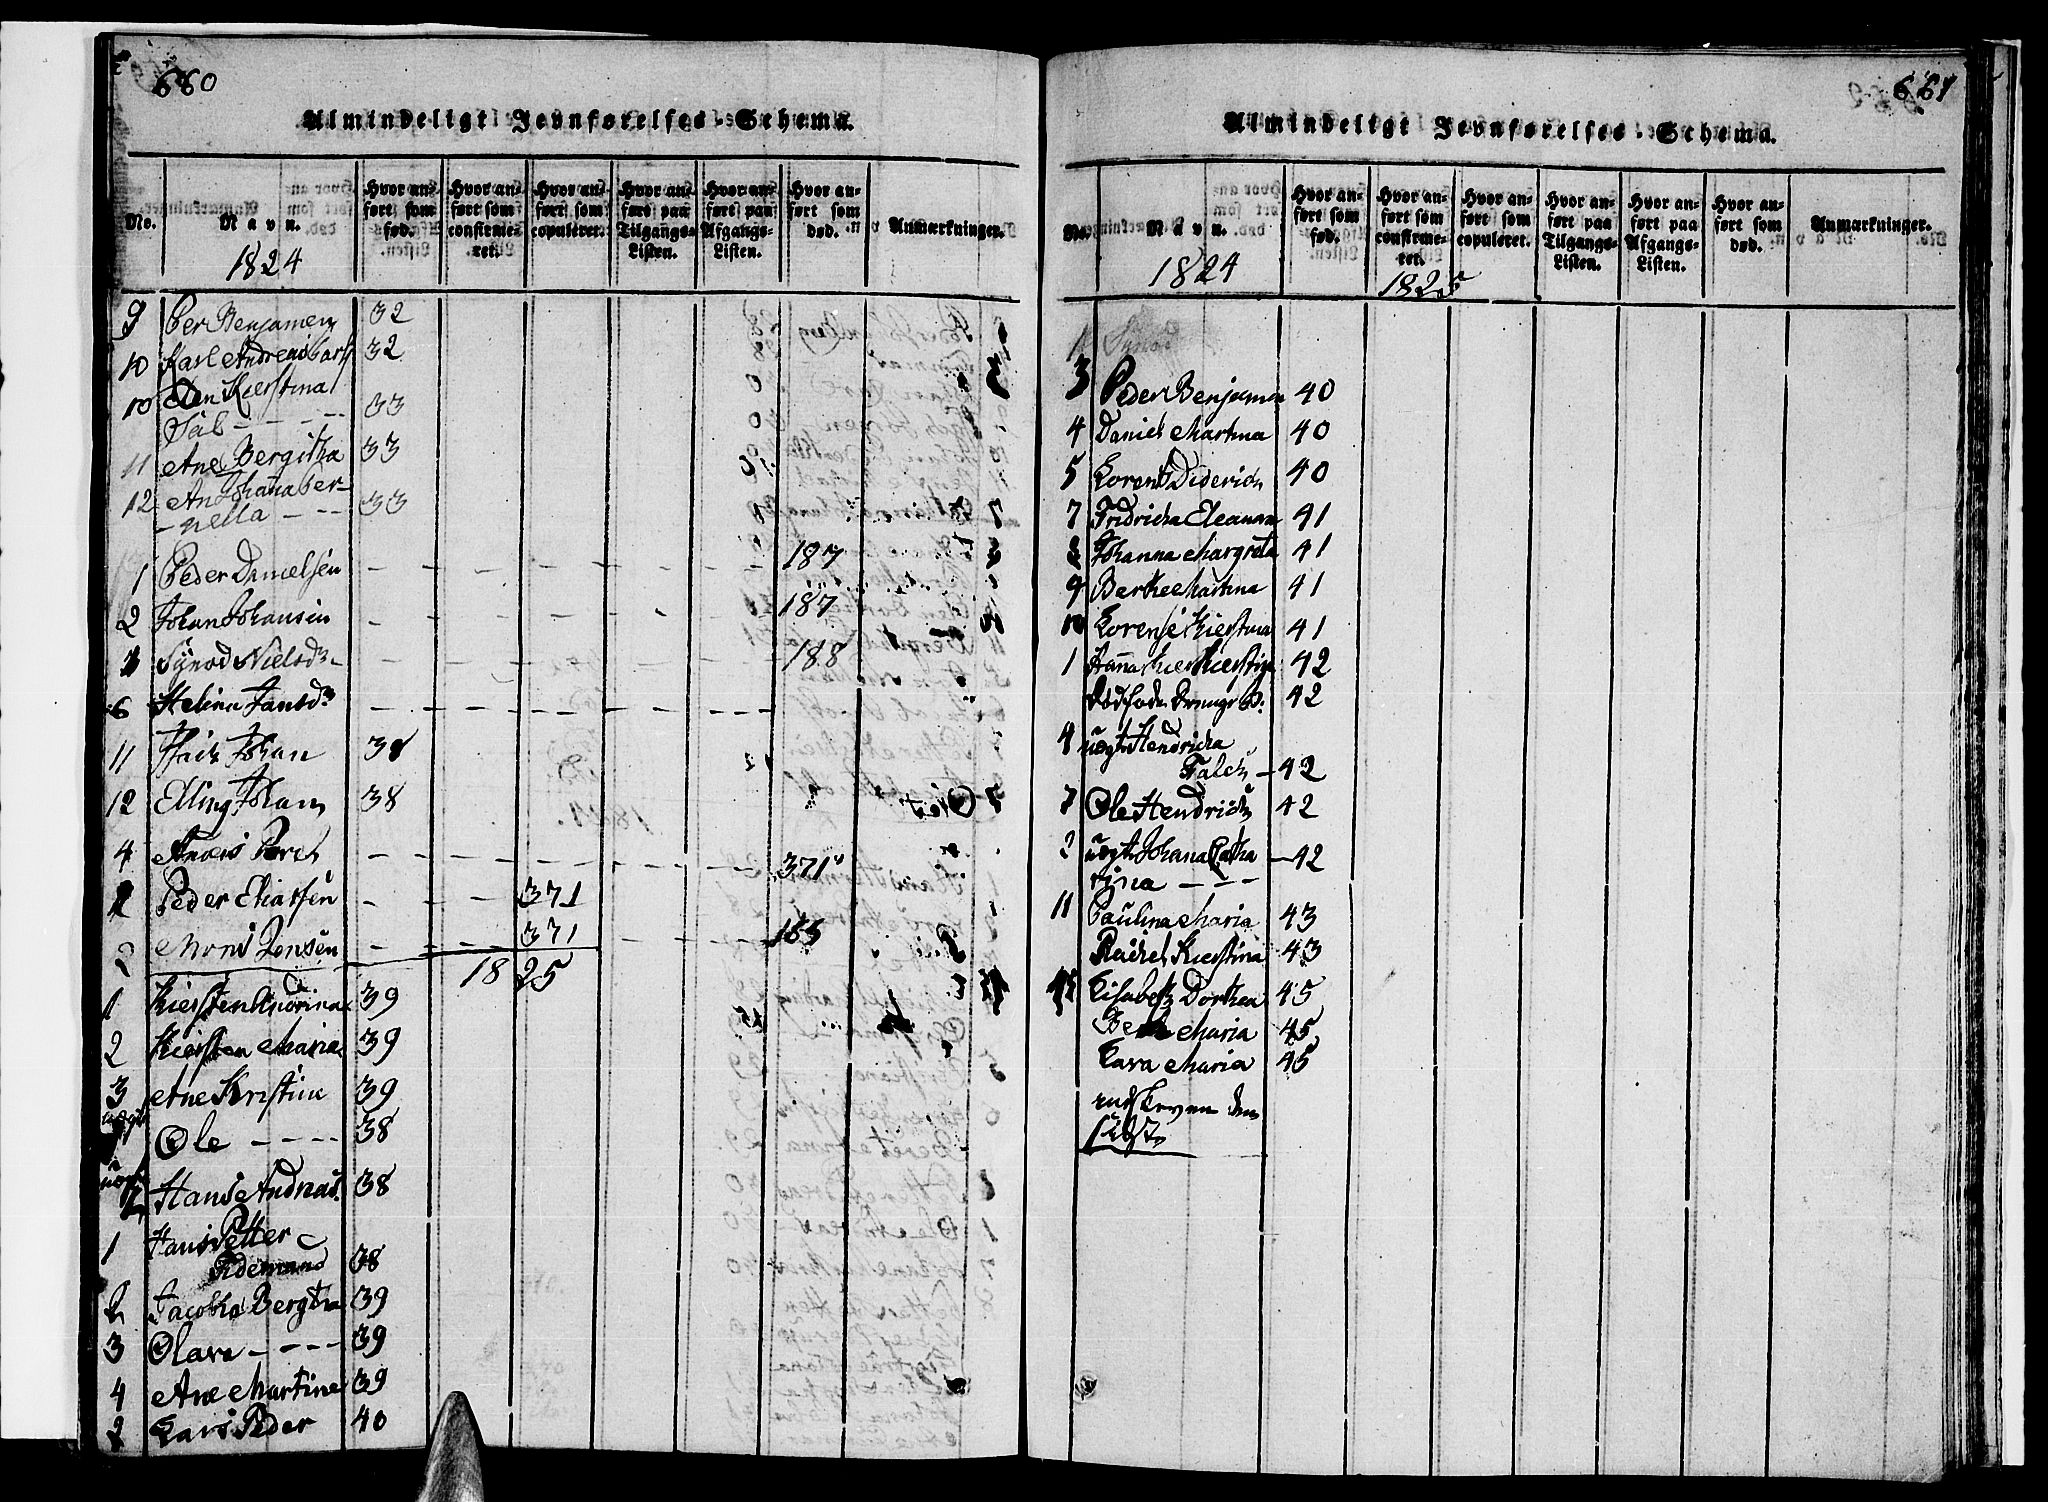 660
Almindeligt Jevnførelses-Schema.
No.
Navn.
Hvor anført som fød.
Hvor anført som confirmeret.
Hvor anført som copuleret.
Hvor anført paa Tilgangs-Listen.
Hvor anført paa Afgangs-Listen.
Hvor anført som død.
Anmærkninger.
1824
9 Per Benjamen 32
10 Karl Andreas Lars 32
10 Elen Kierstina
Sal - - - - 33
11 Ane Bergitha 33
12 An Johanna Per-
-nella - - - 33
1 Peder Danielsen - - - - - 187
2 Johan Johansen - - - - - 187
Synod Nielsd - - - - - 188
6 Helina Jansd - - - - -
11 Johan 38
12 Elling Johan 38
4 - - - - - 371
2 Peder Eliassen - - - 371
2 Mons Jensen - - - 371 - - 185
1825
1 Kiersten Andrina 39
2 Kiersten Maria 39
3 Ane Kristine 39
Ole - - - - 38
Hans Andreas 38
1 Hans Petter
Tidemand 38
2 Jacobha Bergtha 39
3 Olava - - - - 39
4 Ane Martine 39
2 Lars Peder 40
661
Almindeligt Jevnførelses-Schema.
No.
Navn.
Hvor anført som fød.
Hvor anført som confirmeret.
Hvor anført som copuleret.
Hvor anført paa Tilgangs-Listen.
Hvor anført paa Afgangs-Listen.
Hvor anført som død.
Anmærkninger.
1824
1825
3 Peder Benjamen 40
4 Daniel Martina 40
5 Lorents Diderich 40
7 Fridricha Eleanora 41
8 Johanna Margreta 41
9 Berthe Martina 41
10 Lorense Kierstina 41
1 Hanna 42
Dødføde Drenge B: 42
4 uegt Hendricha
Falck - 42
7 Ole Hendrich 42
2 uegt Johana Catha - 42
rina - - -
11 Paulina Maria 43
Rachel Kierstina 43
Elisabeth Dorthea 45
Maria 45
Lava Maria 45